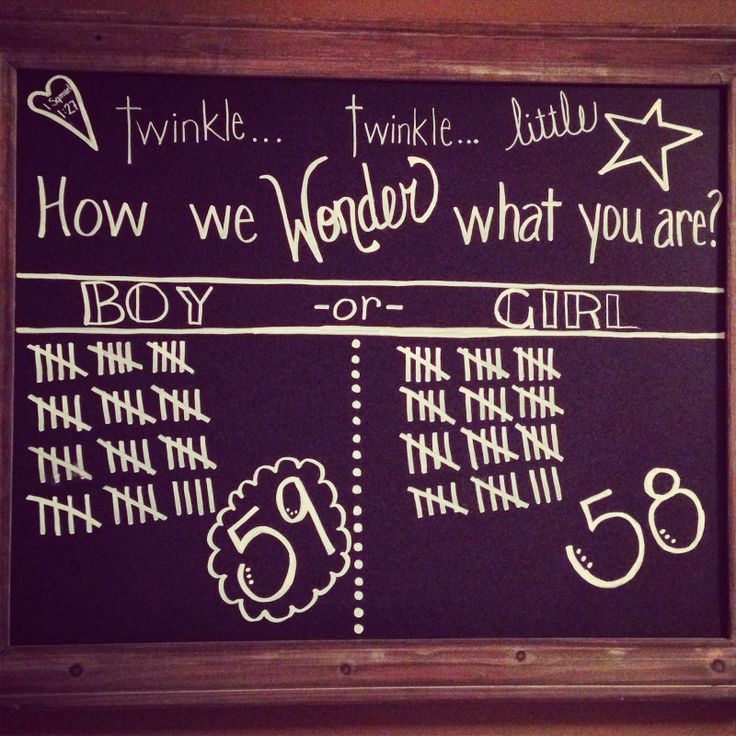 1 Samuel
1:27
twinkle... twinkle... little
How we Wonder what you are?
BOY -or- GIRL
59
58